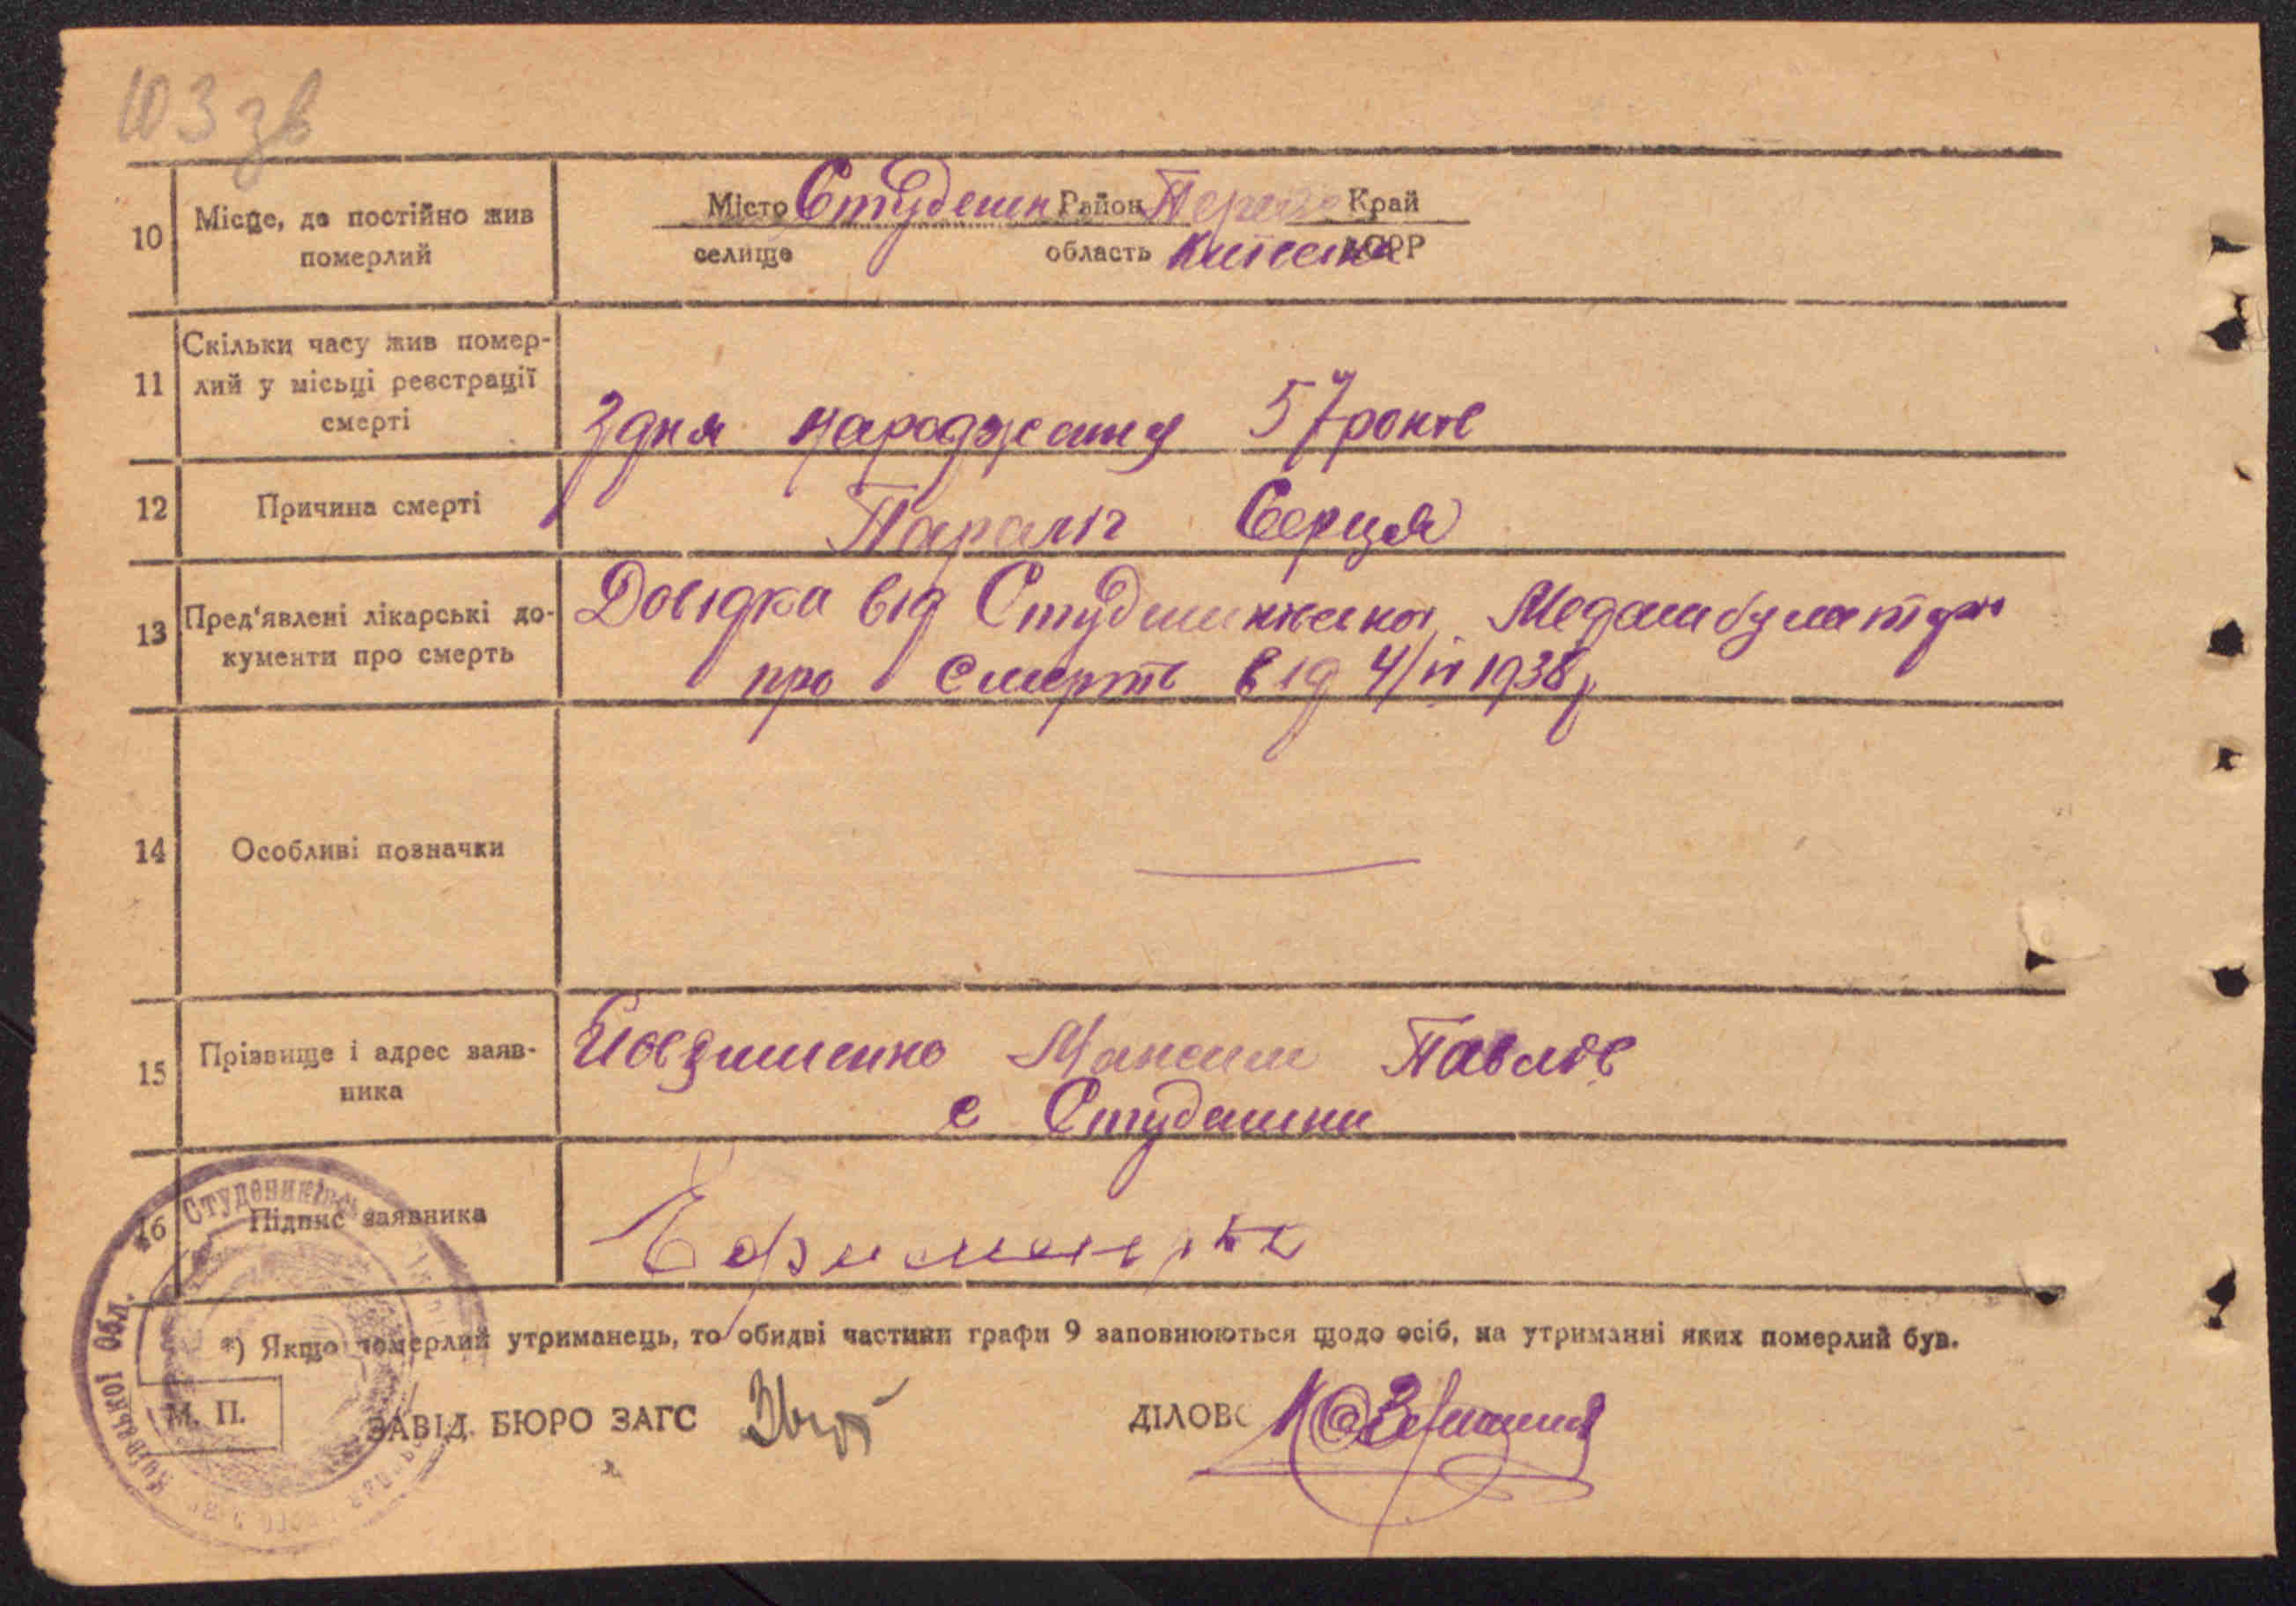 103 зв
10 Місце, де постійно жив померлий
Місто Студеник Район Перея Край
селище область Київська АСРР
11 Скільки часу жив помер-
лий у місьці реєстрації
смерті
З дня народження 57 років
12 Причина смерті
Параліг Серця
13 Пред'явлені лікарські до-
кументи про смерть
Довідка від Студениківської Медамбулатори
про смерть від 4/IV 1938 р
14 Особливі позначки
15 Прізвище і адрес заяв-
ника
Максим Павлов
с Студеники
16 Підпис заявника
*) Якщо померлий утриманець, то обидві частини графи 9 заповнюються щодо осіб, на утриманні яких померлий був.
М. П.
ЗАВІД. БЮРО ЗАГС
ДІЛОВ
Студениківсь
Київської Обл.